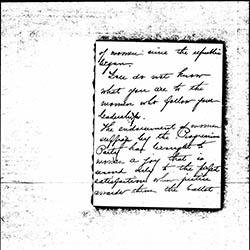 of women since the republic
began.
You do not know
what you are to the
women who follow your
leadership.
The endorsement of woman
suffrage by the Progressive
Party has brought to
women a joy that is
second only to the perfect
satisfaction when justice
awards them the ballot